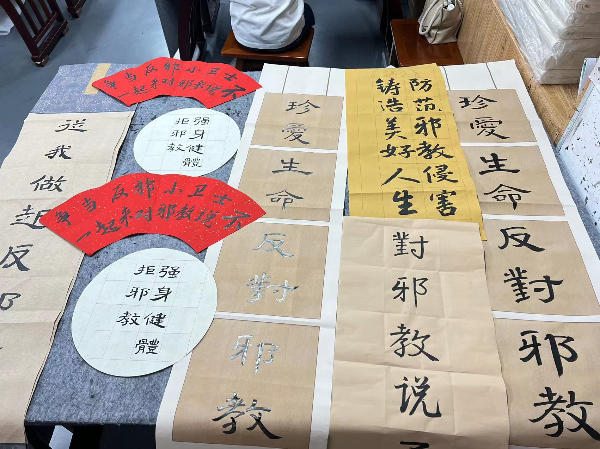 從我做起反
争当反邪小卫士
一起来对邪教说不
强身健體
拒邪教
争当反邪小卫士
一起来对邪教说不
强身健體
拒邪教
珍愛
生命
反對
邪教
防范邪教侵害
铸造美好人生
對邪教说
珍愛
生命
反對
邪教